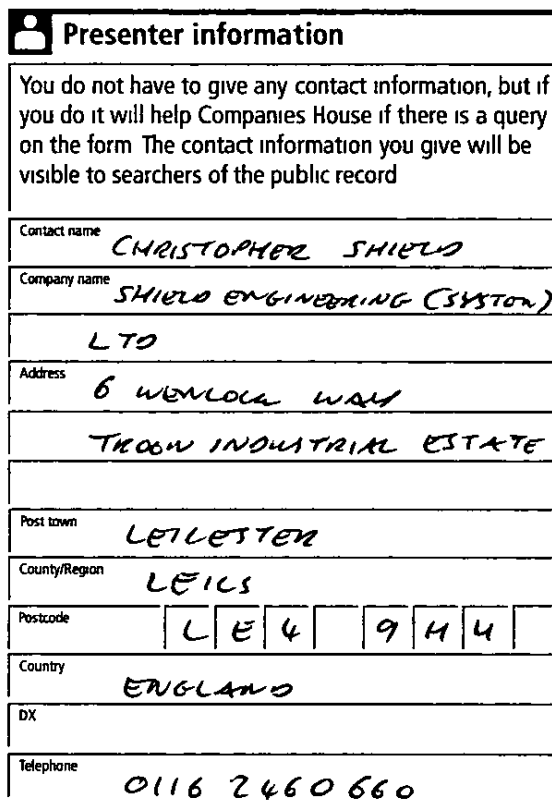 Presenter information
You do not have to give any contact information, but if
you do it will help Companies House if there is a query
on the form The contact information you give will be
visible to searchers of the public record
Contact name CHRISTOPHER SHIELD
Company name SHIELD ENGINEERING (SYSTON)
LTD
Address 6 WENLOCK WAY
TROON INDUSTRIAL ESTATE
Post town LEICESTER
County/Region LEICS
Postcode LE4 9HU
Country ENGLAND
DX
Telephone 0116 2460660